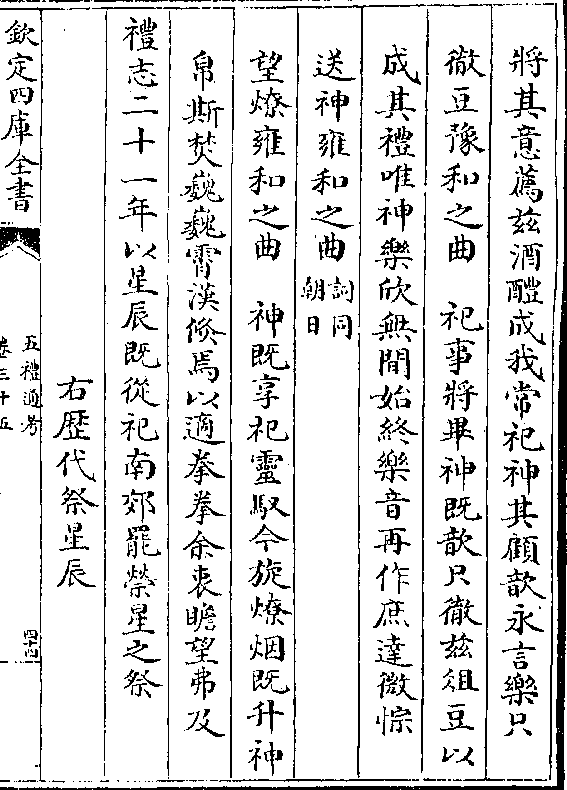 將其意薦茲酒醴成我常祀神其顧歆永言樂只
徹豆豫和之曲　祀事將畢神既歆只徹茲俎豆以
成其禮唯神樂欣無間始終樂音再作庶達微悰
送神雍和之曲詞同朝日
望燎雍和之曲　神既享祀靈馭今旋燎烟既升神
帛斯焚巍巍霄漢倐焉以適拳拳余衷瞻望弗及
禮志二十一年以星辰既從祀南郊罷禜星之祭
右歴代祭星辰
欽定四庫全書
五禮通考
卷三十五
四十四